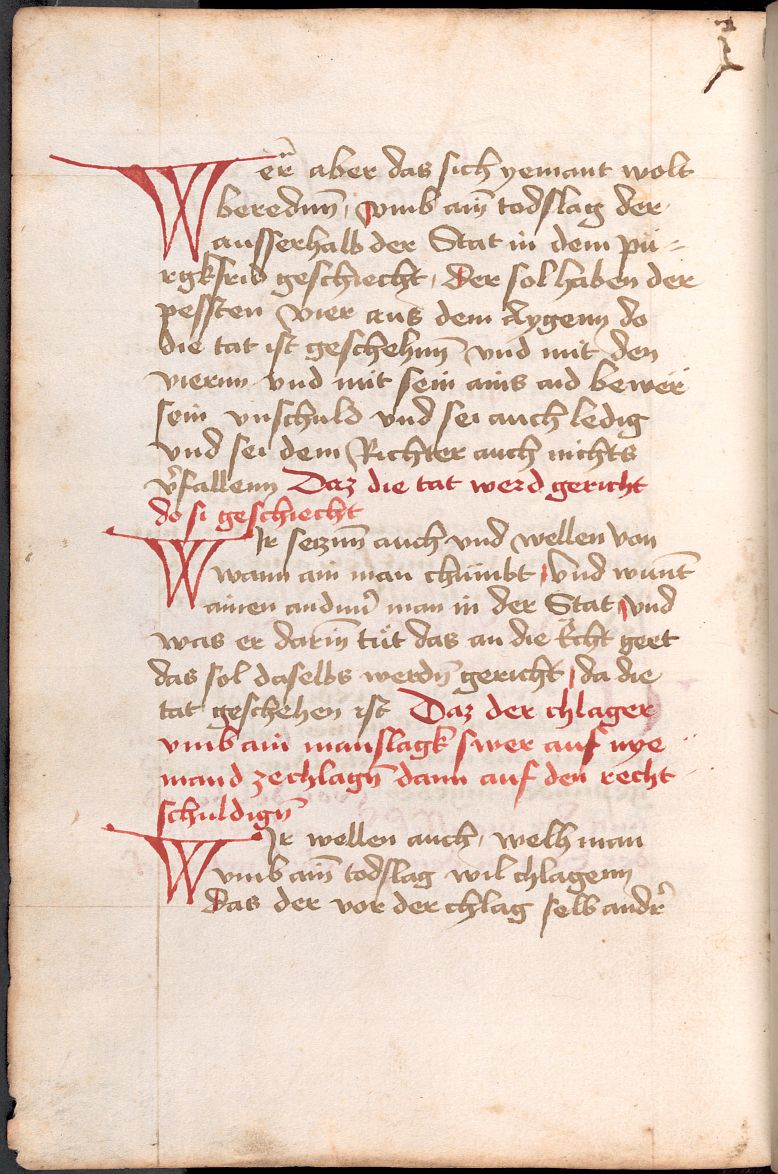 Wer̃ aber das sich yemant wolt
berednn̄, vmb ain̄ todslag der
ausserhalb der Stat in dem pu-
rgkfrid geschiecht, Der sol haben der
pessten vier aus dem Aygenn do
die tat ist geschehnn̄ vnd mit den
viernn vnd mit sein ains aid bewër
sein vnschuld vnd sei auch ledig
vnd sei dem Richter auch nichts
v̄fallenn Daz die tat werd gericht
do si geschiecht
WIr secznn̄ auch vnd wellen von
wann ain man chümbt, vnd wunt̄
ainen andnn̄ man in der Stat, vnd
was er darin̄ tüt das an die Ëcht geet
das sol daselbs werdn̄ gericht, da die
tat geschehen ist Daz der chlager
vmb ain manslagk swer auf nye
mand zechlagn̄ dann auf den recht
schuldign̄
WIr wellen auch, welh man
vmb ain̄ todslag wil chlagenn
Das der vor der chlag selb andr̄